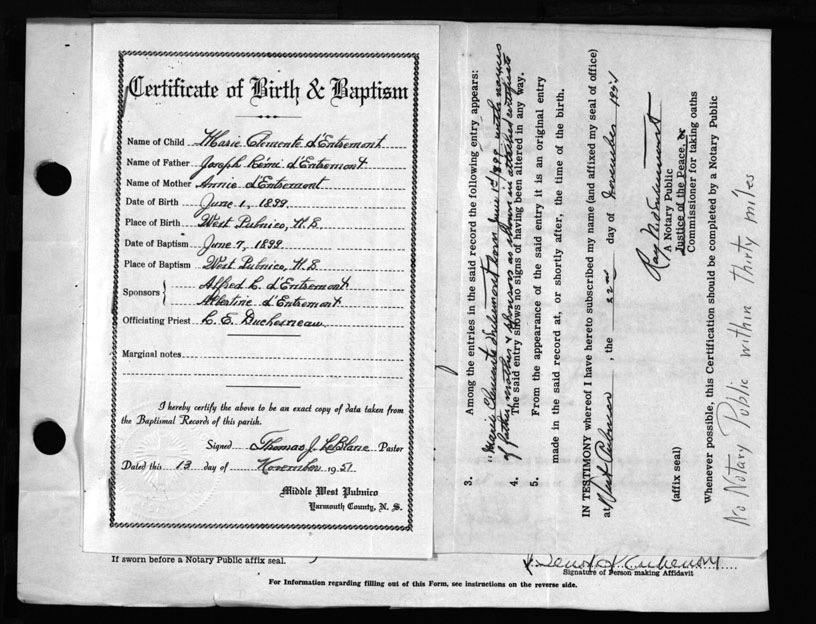 Certificate of Birth & Baptism
Name of Child Marie Clemente d'Entremont
Name of Father Joseph Remi d'Entremont
Name of Mother Annie d'Entremont
Date of Birth June 1, 1899.
Place of Birth West Pubnico, N.S.
Date of Baptism June 7, 1899.
Place of Baptism West Pubnico, N.S.
Sponsors { Alfred C. d'Entremont
Albertine d'Entremont
Officiating Priest C. E. Duchesneau
Marginal notes
I hereby certify the above to be an exact copy of data taken from
the Baptismal Records of this parish.
Signed Thomas J. LeBlanc Pastor
Dated this 13 day of November 1951
Middle West Pubnico
Yarmouth County, N. S.
3. Among the entries in the said record the following entry appears:
"Marie Clemente d'Entremont born June 1st 1899 with names
of father, mother & sponsors as shown in attached certificate
4. The said entry shows no signs of having been altered in any way.
5. From the appearance of the said entry it is an original entry
made in the said record at, or shortly after, the time of the birth.
IN TESTIMONY whereof I have hereto subscribed my name (and affixed my seal of office)
at West Pubnico, the 22nd day of November 1951
A Notary Public
Justice of the Peace, or
Commissioner for taking oaths
(affix seal)
Whenever possible, this Certification should be completed by a Notary Public
No Notary Public within thirty miles
If sworn before a Notary Public affix seal.
Signature of Person making Affidavit
For Information regarding filling out of this Form, see instructions on the reverse side.